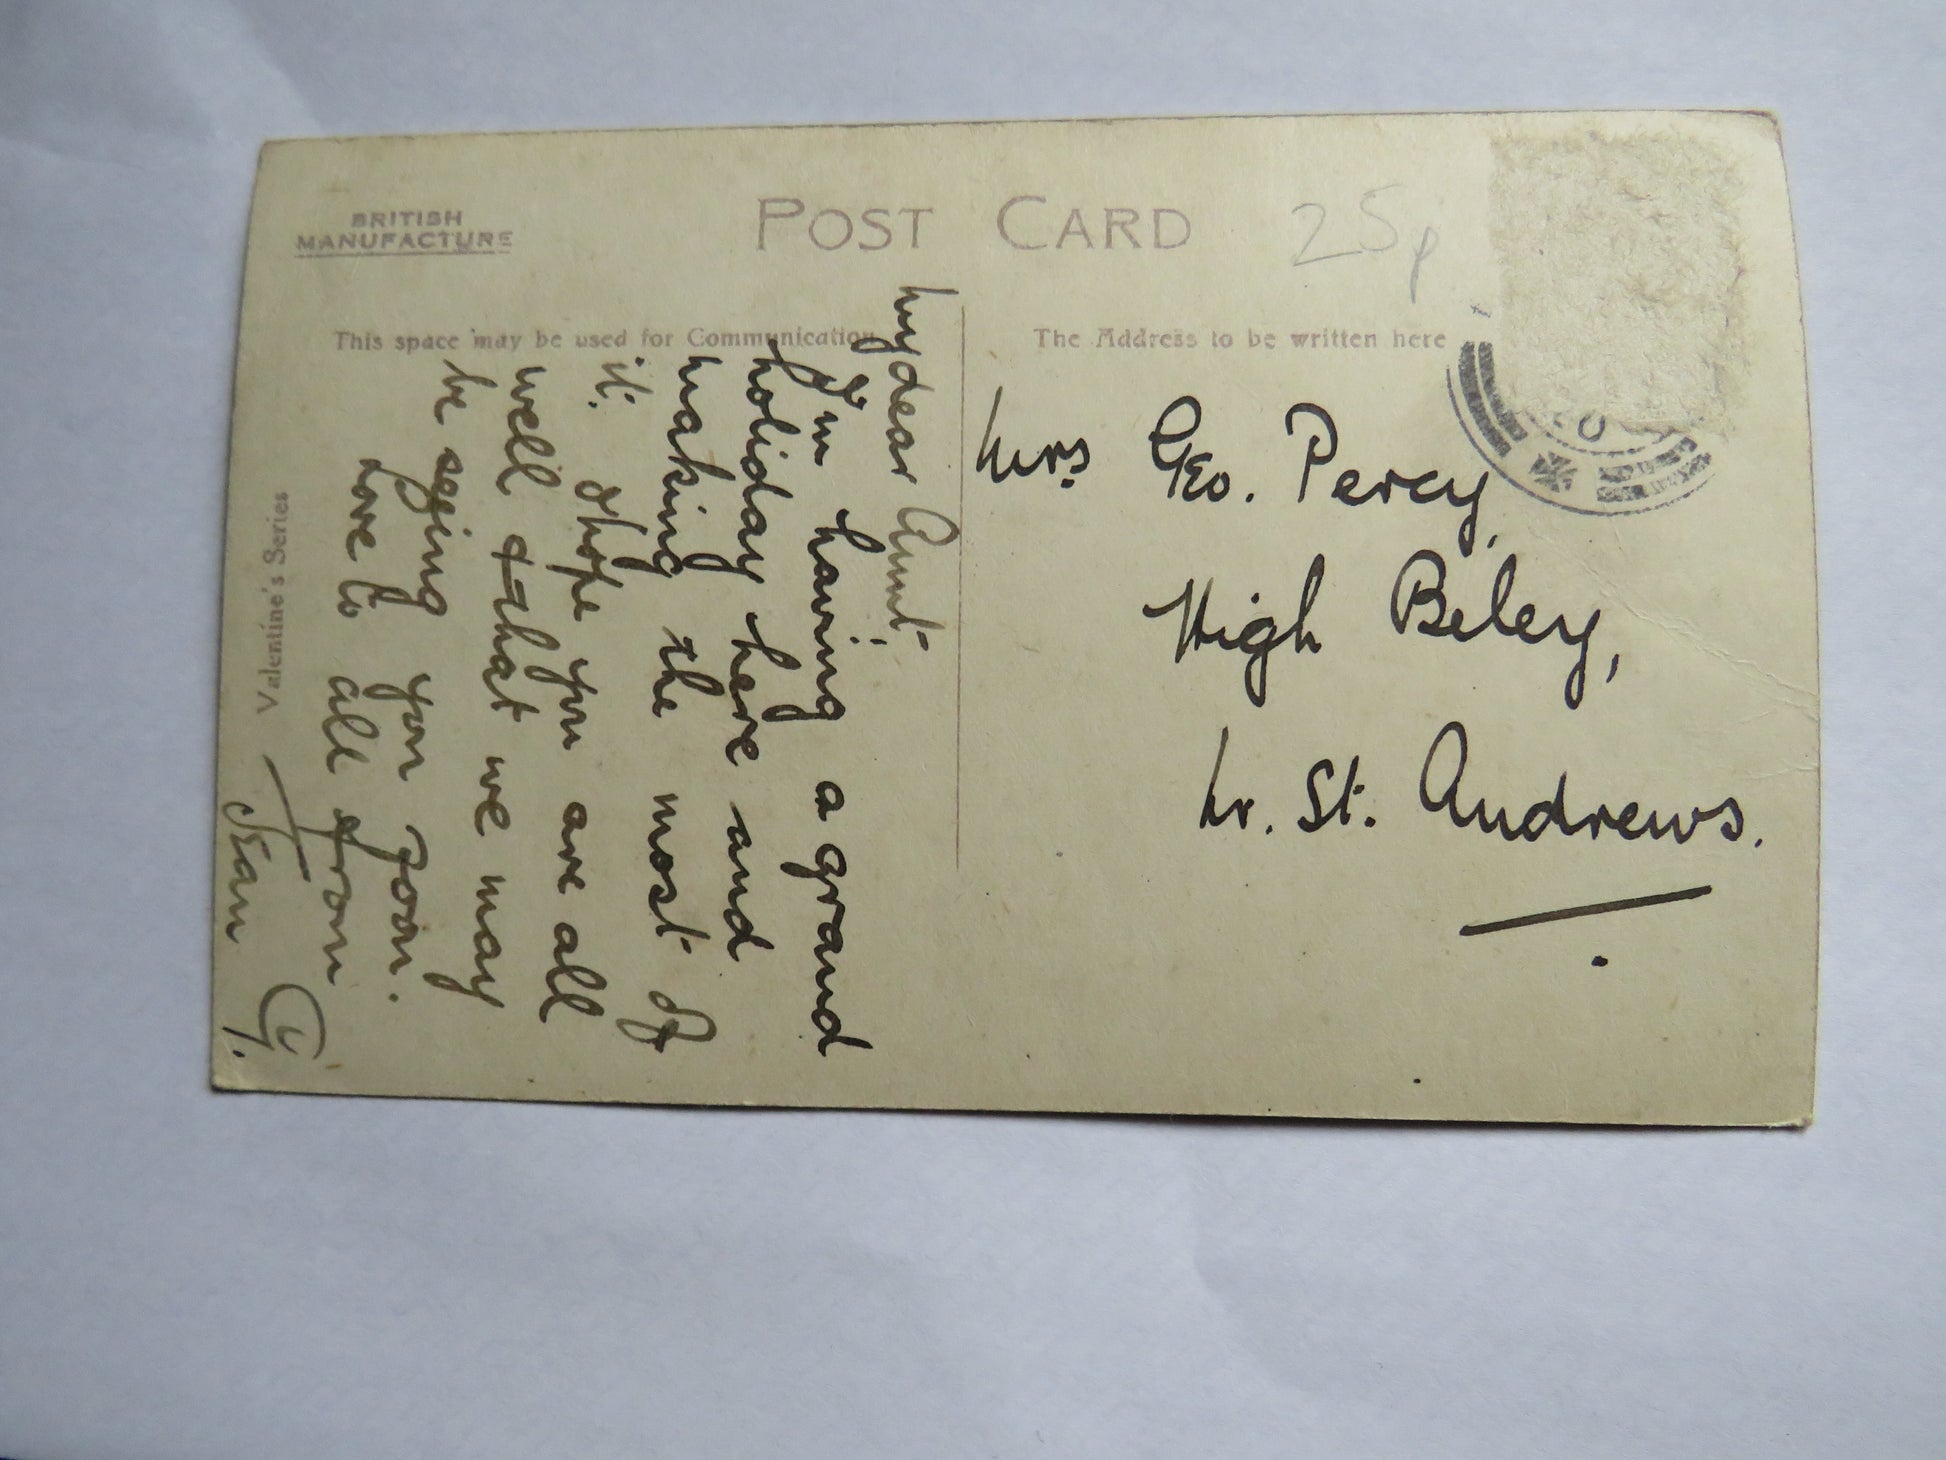 BRITISH
MANUFACTURE
POST CARD
25p
This space may be used for Communication
The Address to be written here
My dear Aunt,
I'm having a grand
holiday here and
making the most of
it. I hope you are all
well & that we may
be seeing you soon.
Love to all from
Jean G.
Valentine's Series
Mrs Geo. Percy,
High Beley,
Nr. St. Andrews.